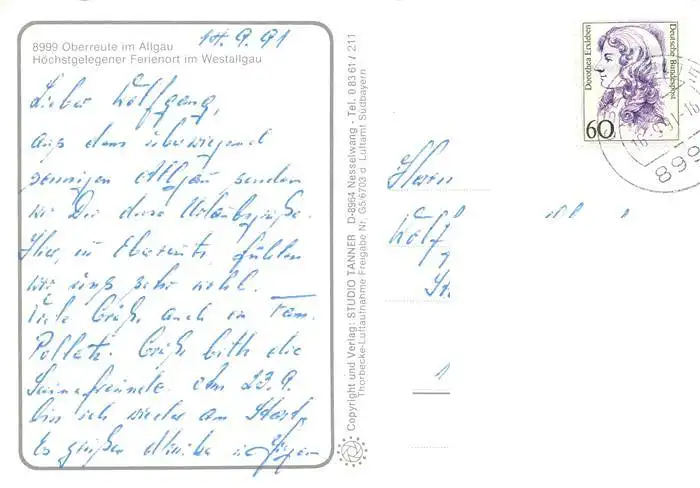 8999 Oberreute im Allgäu
Höchstgelegener Ferienort im Westallgäu
14.9.91
Lieber Wolfgang,
aus dem überwiegend
sonnigen Allgäu senden
wir Dir diese Urlaubsgrüße.
Hier, in Oberreute, fühlen
wir uns sehr wohl.
Viele Grüße auch an Fam.
Pollatz. Grüße bitte die
Saunafreunde. Am 23.9.
bin ich wieder am Start.
Es grüßen
Copyright und Verlag: STUDIO TANNER D-8964 Nesselwang - Tel. 0 83 61 / 211
Thorbecke-Luftaufnahme Freigabe Nr. G5/6703 d Luftamt Südbayern
Herrn
Wolf
g
St
1
Dorothea Erxleben
Deutsche Bundespost
60
899